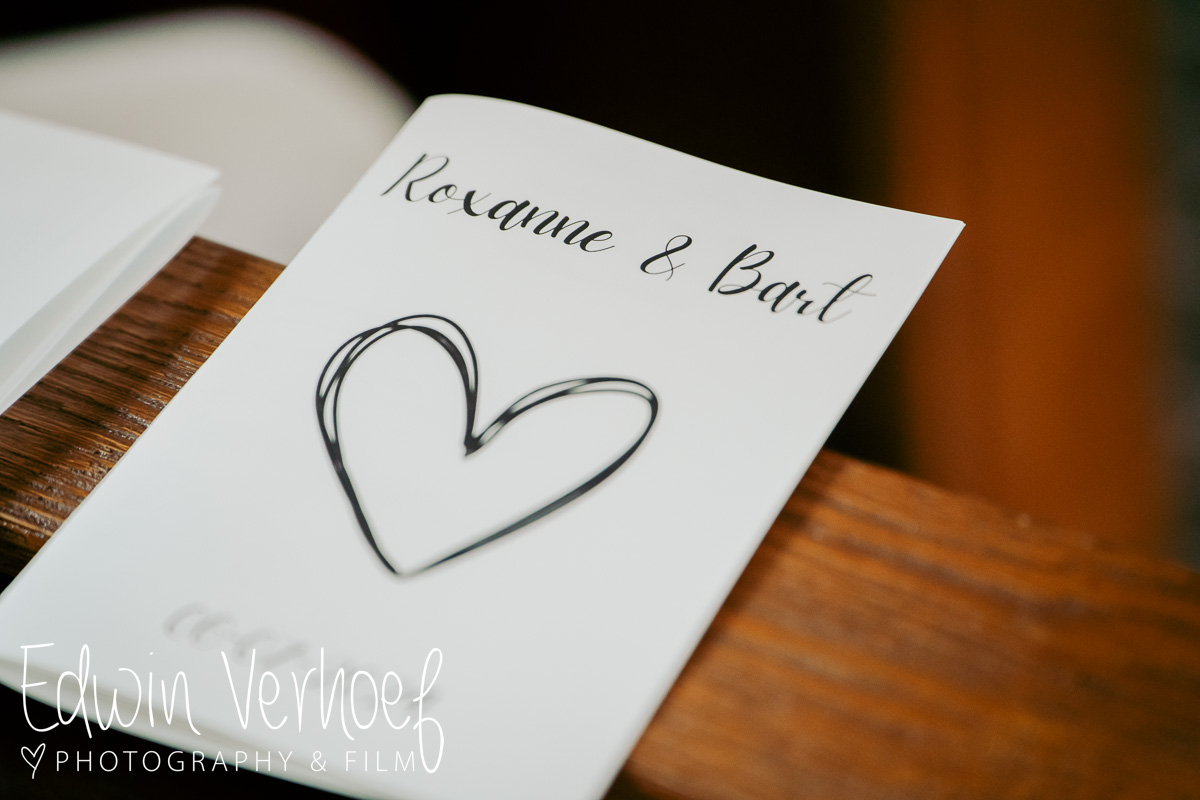 Roxanne & Bart
Edwin Verhoef
PHOTOGRAPHY & FILM